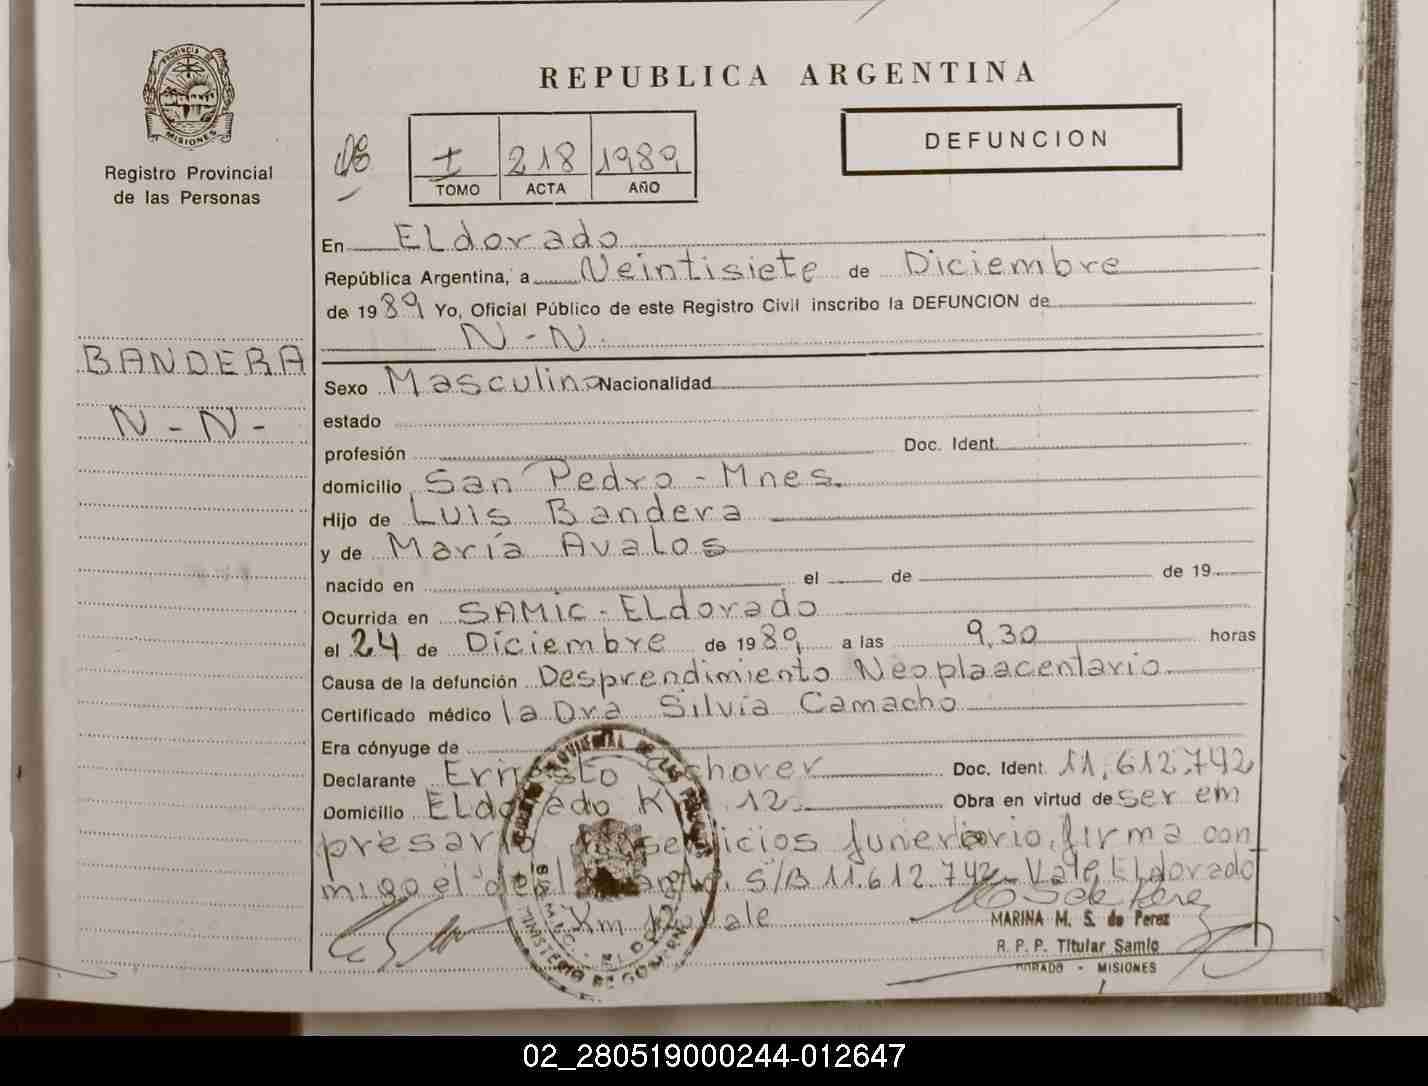 PROVINCIA DE
MISIONES
Registro Provincial
de las Personas
BANDERA
N - N -
REPUBLICA ARGENTINA
DEFUNCION
I 218 1989
TOMO ACTA AÑO
En ELdorado
República Argentina, a Veintisiete de Diciembre
de 1989 Yo, Oficial Público de este Registro Civil inscribo la DEFUNCION de
N - N.
Sexo Masculino Nacionalidad
estado
profesión Doc. Ident.
domicilio San Pedro - Mnes.
Hijo de Luis Bandera
y de María Avalos
nacido en el de de 19
Ocurrida en SAMIC - ELdorado
el 24 de Diciembre de 1989 a las 9,30 horas
Causa de la defunción Desprendimiento Neoplaacentario
Certificado médico la Dra Silvia Camacho
Era cónyuge de
Declarante Ernesto Doc. Ident. 11.612.742
Domicilio ELdorado Km 12 Obra en virtud de ser em
presario de servicios funerario, firma con
migo el declarante. S/B 11.612.742 - Vale ELdorado
Km 12 Vale
MARINA M. S. de Perez
R. P. P. Titular Samic
DORADO - MISIONES
02_280519000244-012647